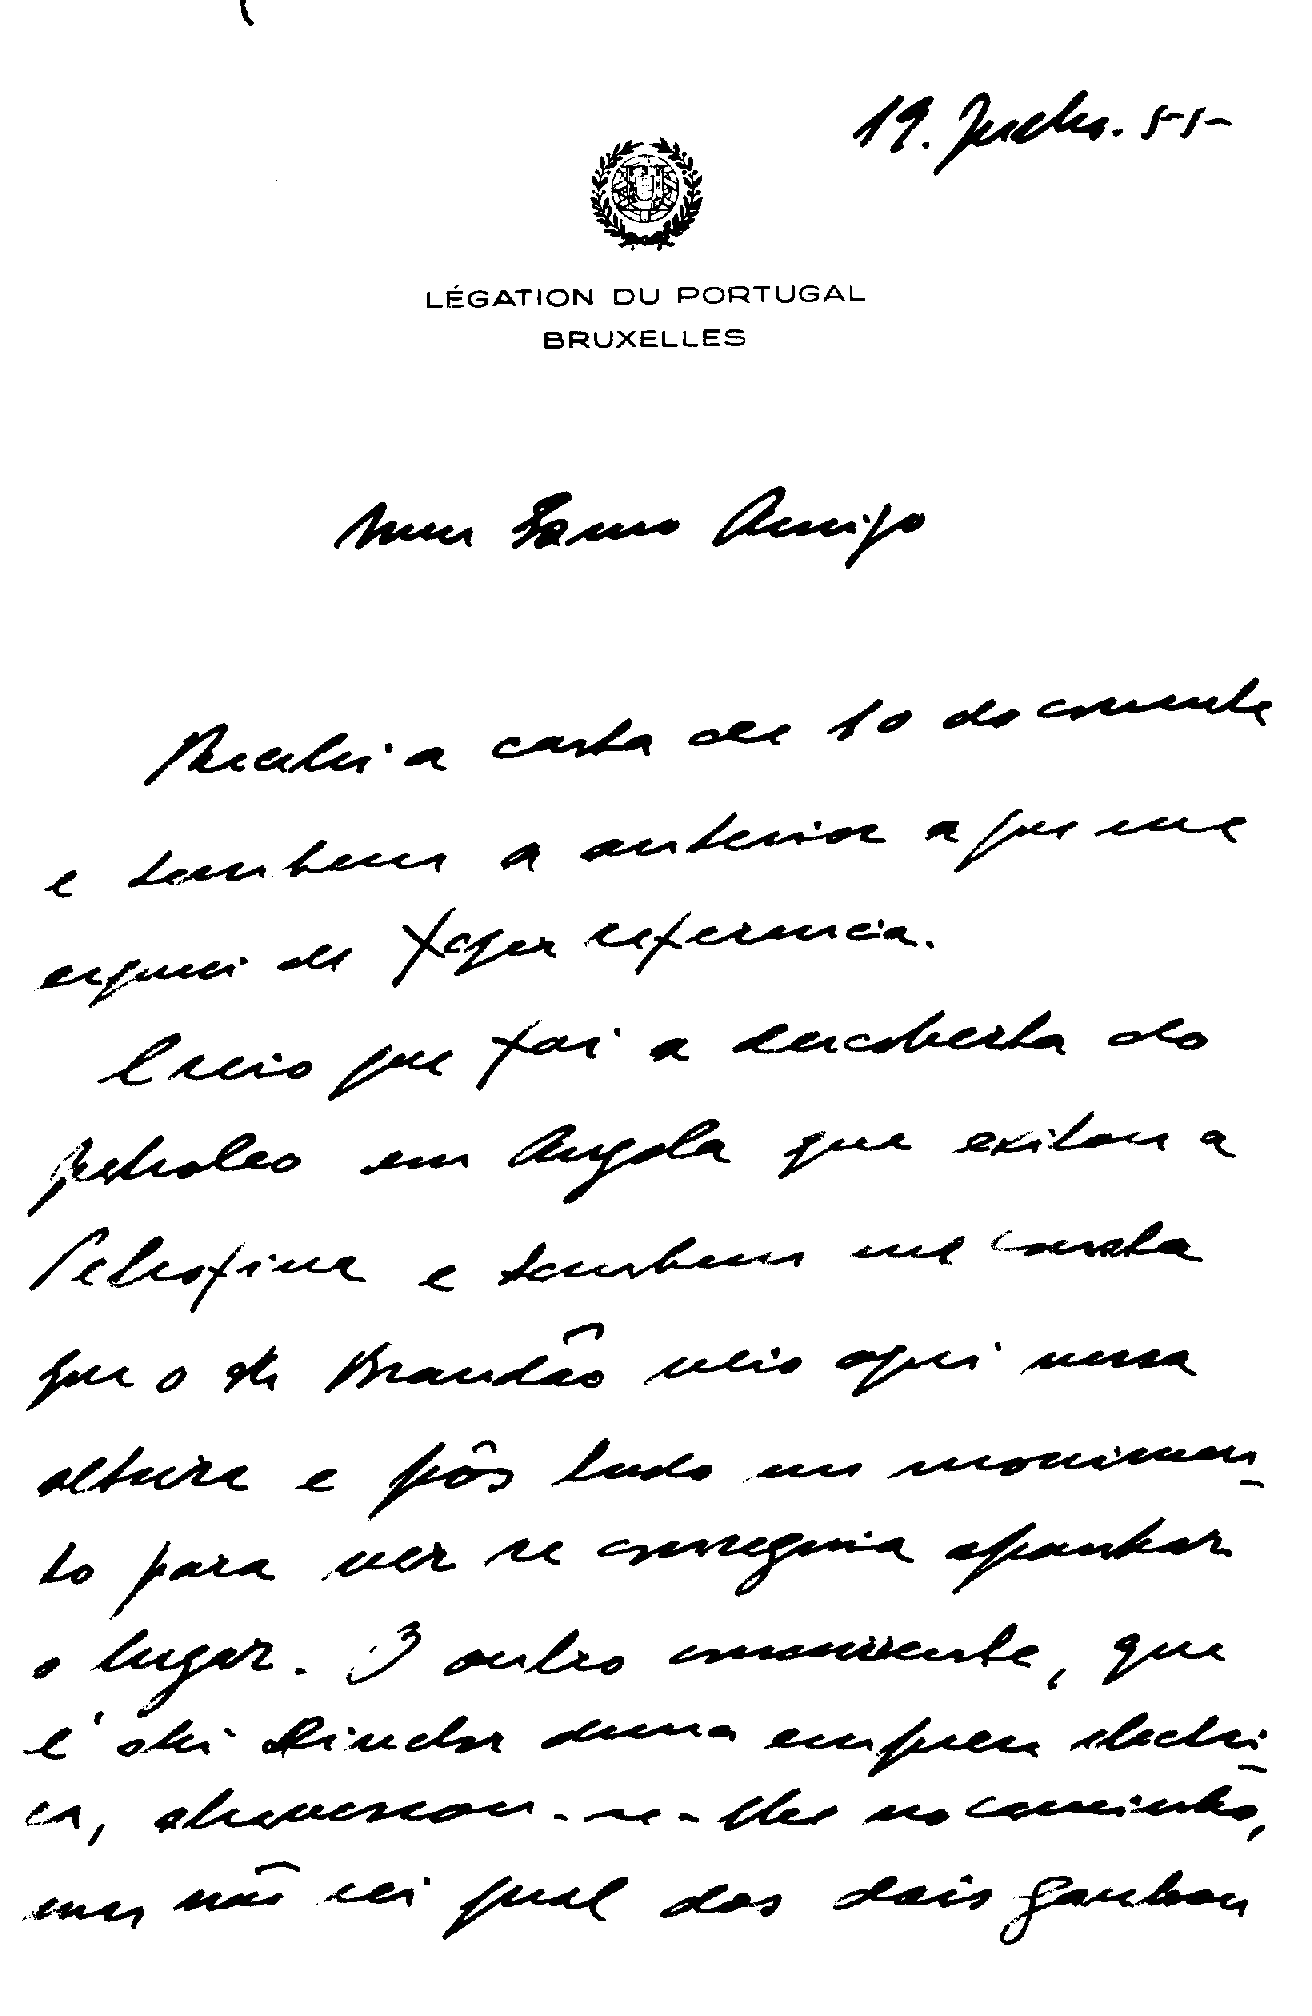 19. Junho. 55-
LÉGATION DU PORTUGAL
BRUXELLES
Meu Exmo Amigo
Recebi a carta de 10 do corrente
e tambem a anterior a que me
esqueci de fazer referencia.
Creio que foi a descoberta do
petroleo em Angola que exitou a
Petrofina e tambem me consta
que o dr Brandão veio aqui nessa
altura e pôs tudo em movimen-
to para ver se conseguia apanhar
o lugar. O outro concorrente, que
é ahi Director duma empresa electri-
ca, atravessou-se-lhe no caminho,
mas não sei qual dos dois ganhou